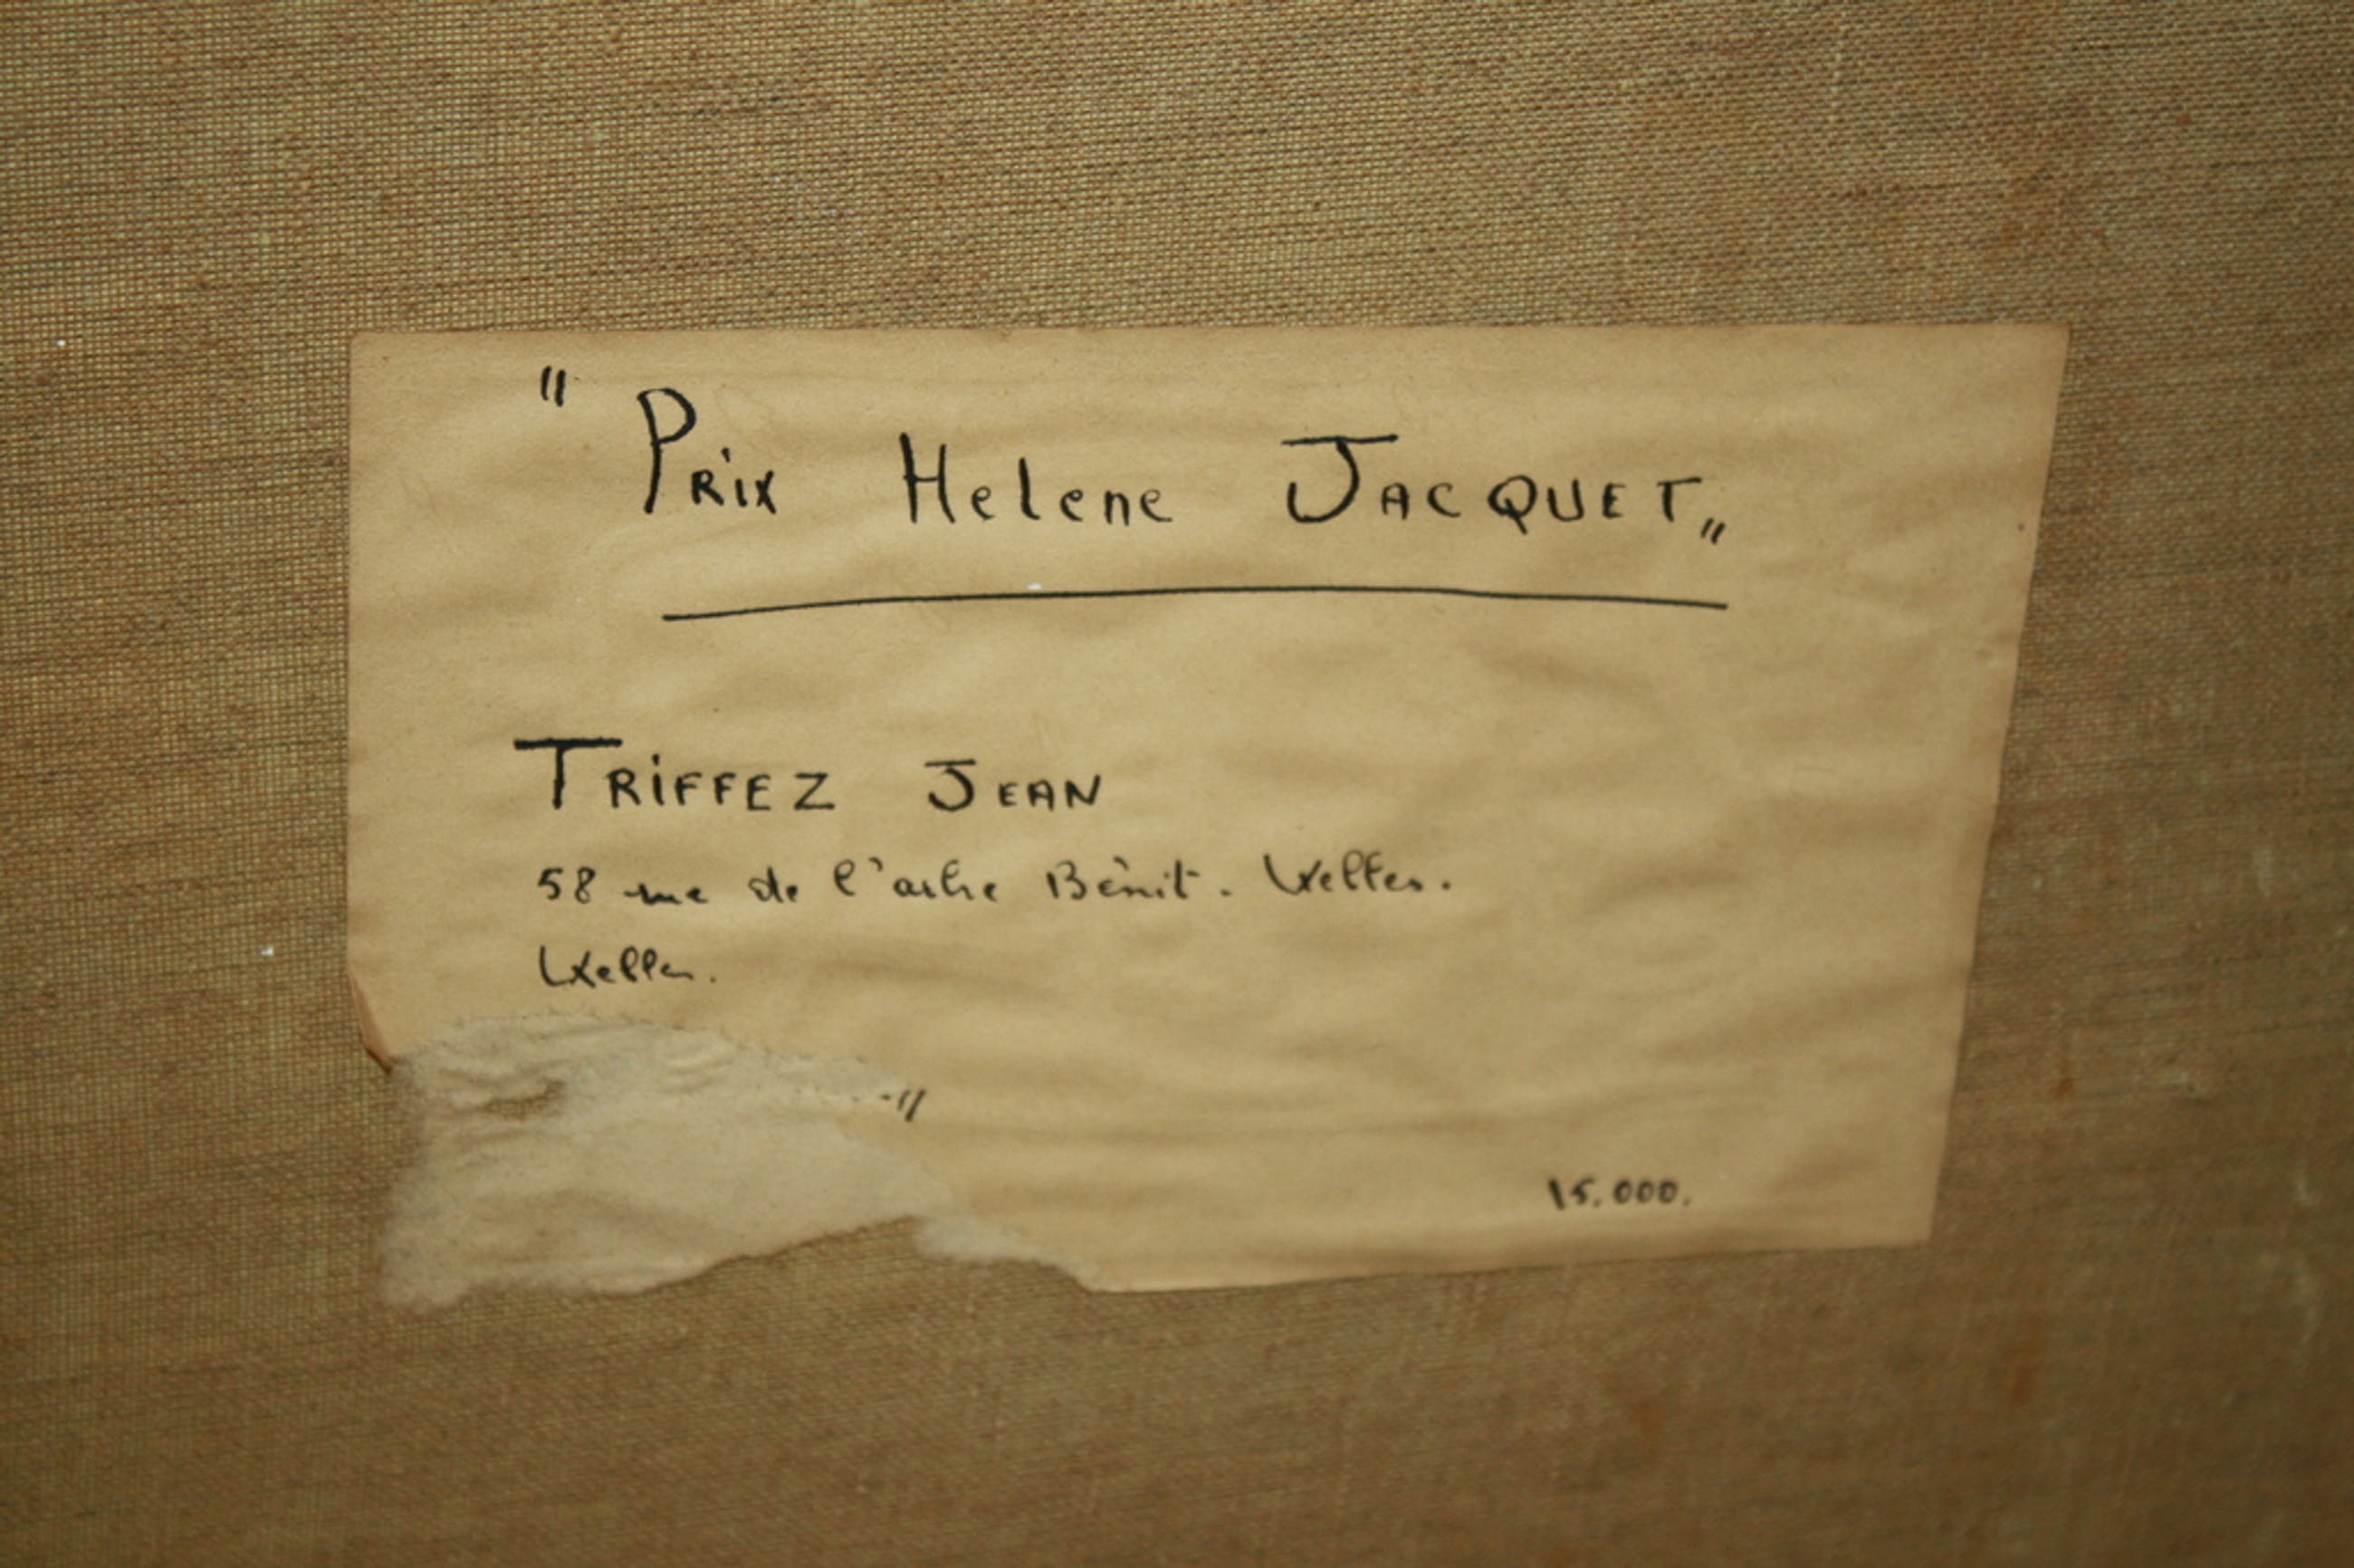 " Prix Helene JACQUET "
TRiFFEZ JEAN
58 rue de l'arbre Bénit. Ixelles.
Ixelles.
"
15.000.